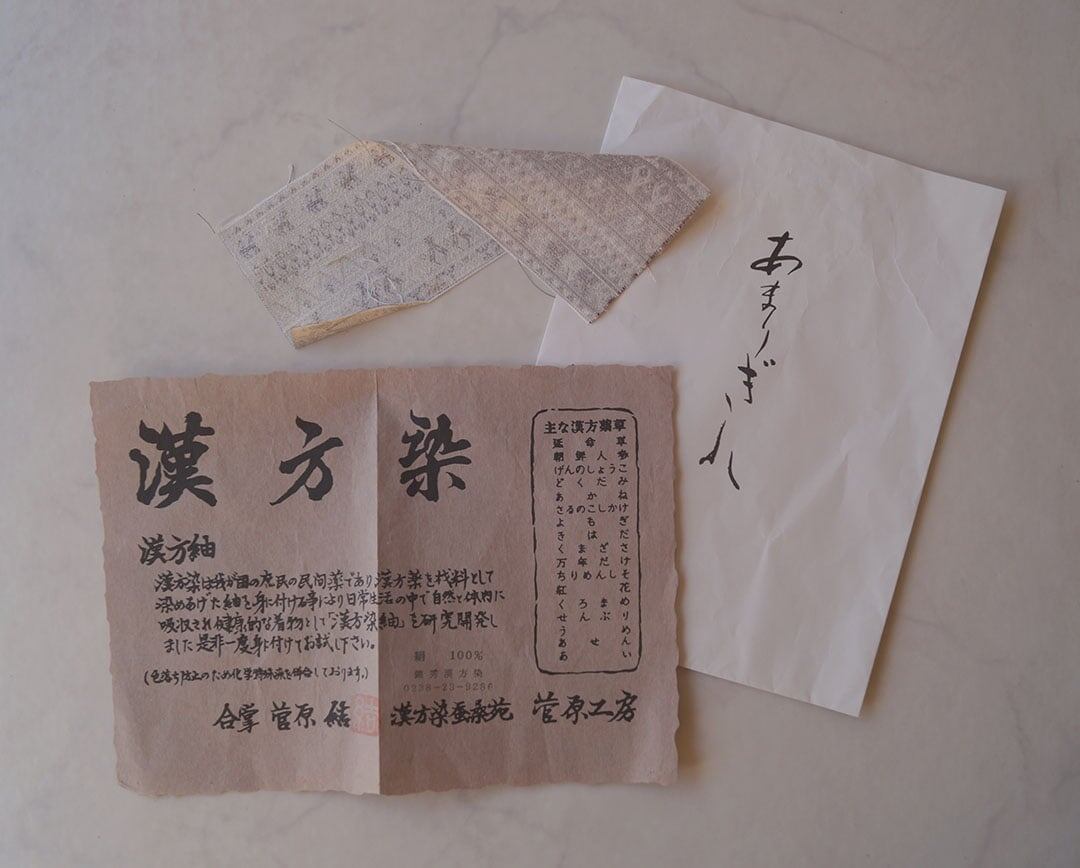 漢方染
漢方紬
漢方染は我が国の庶民の民間薬であり漢方薬を材料として
染めあげた紬を身に付ける事により日常生活の中で自然と体内に
吸収され健康的な着物として「漢方染紬」を研究開発し
ました是非一度身に付けてお試し下さい。
(色落ち防止のため化学特殊染を併合しております。)
絹 100%
漢方染
0238-23-9286
合掌 菅原
漢方染蚕桑苑 菅原工房
主な漢方薬草
延命草
朝鮮人参
げんのしょうこ
どくだみ
あかね
さるのこしかけ
よもぎ
きはだ
くまざさ
万年だけ
ちりめんしそ
紅花
くろまめ
せんぶり
うめ
あせん
あい
あまりぎれ